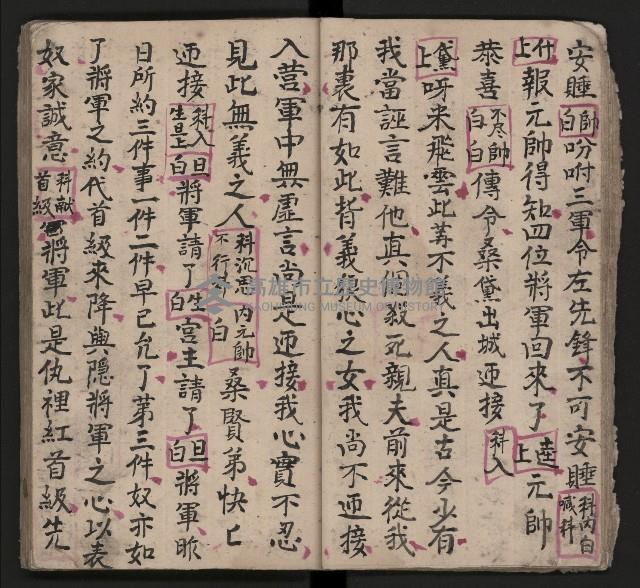 安睡帥白吩咐三軍令左先鋒不可安睡科內白喊科
什上報元帥得知四位將軍回來了逹上元帥
恭喜不尽白帥白傳令桑黛出城迊接科入
黛上呀米飛雲此等不義之人真是古今少有
我當誣言難他真個殺死親夫前來從我
那裏有如此背義忘心之女我尚不迊接
入营軍中無虛言尚是迊接我心實不忍
見此無義之人科沉思不行介內元帥白桑賢弟快亡
迊接科入生是上旦白將軍請了生白宮主請了旦白將軍昨
日所約三件事一件二件早已允了第三件奴亦如
了將軍之約代首級來降與隱將軍之心以表
奴家誠意科献首級將軍此是仇裡紅首級先
高雄市立歷史博物館
KAOHSIUNG MUSEUM OF HISTORY